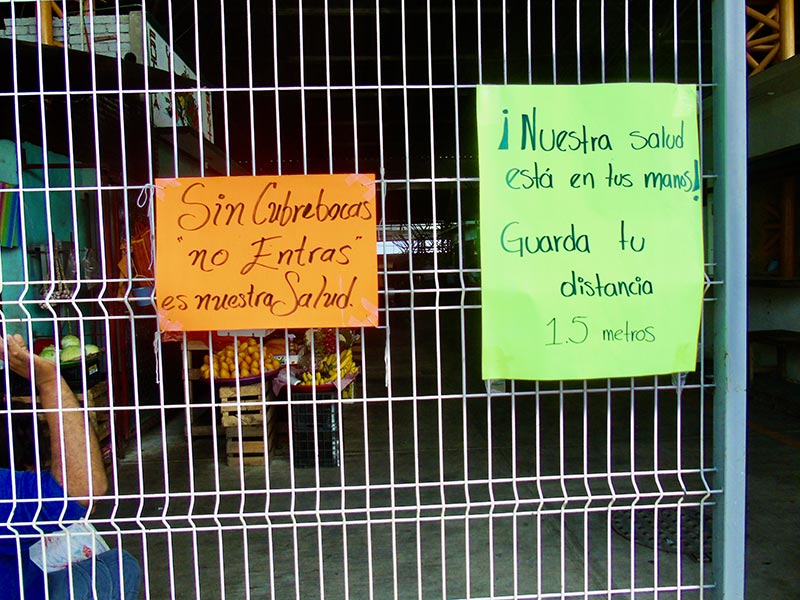 Sin Cubrebocas
"no Entras"
es nuestra Salud.
¡Nuestra salud
está en tus manos!
Guarda tu
distancia
1.5 metros